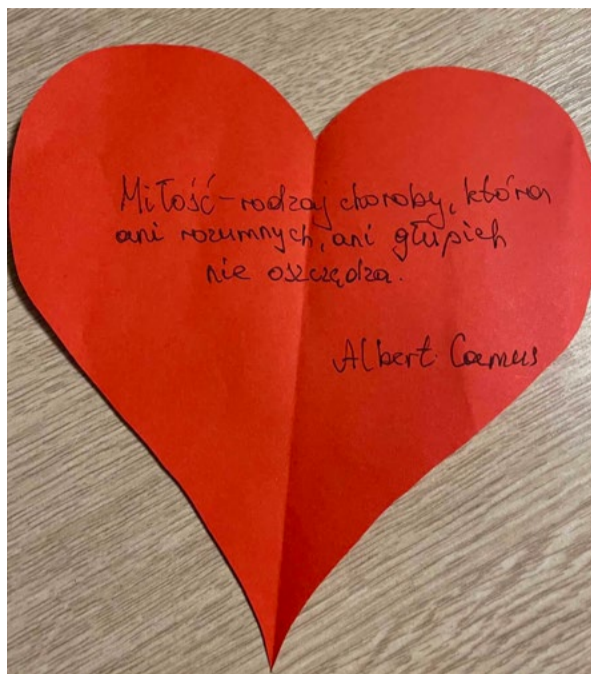 Miłość - rodzaj choroby, która
ani rozumnych, ani głupich
nie oszczędza.
Albert Camus